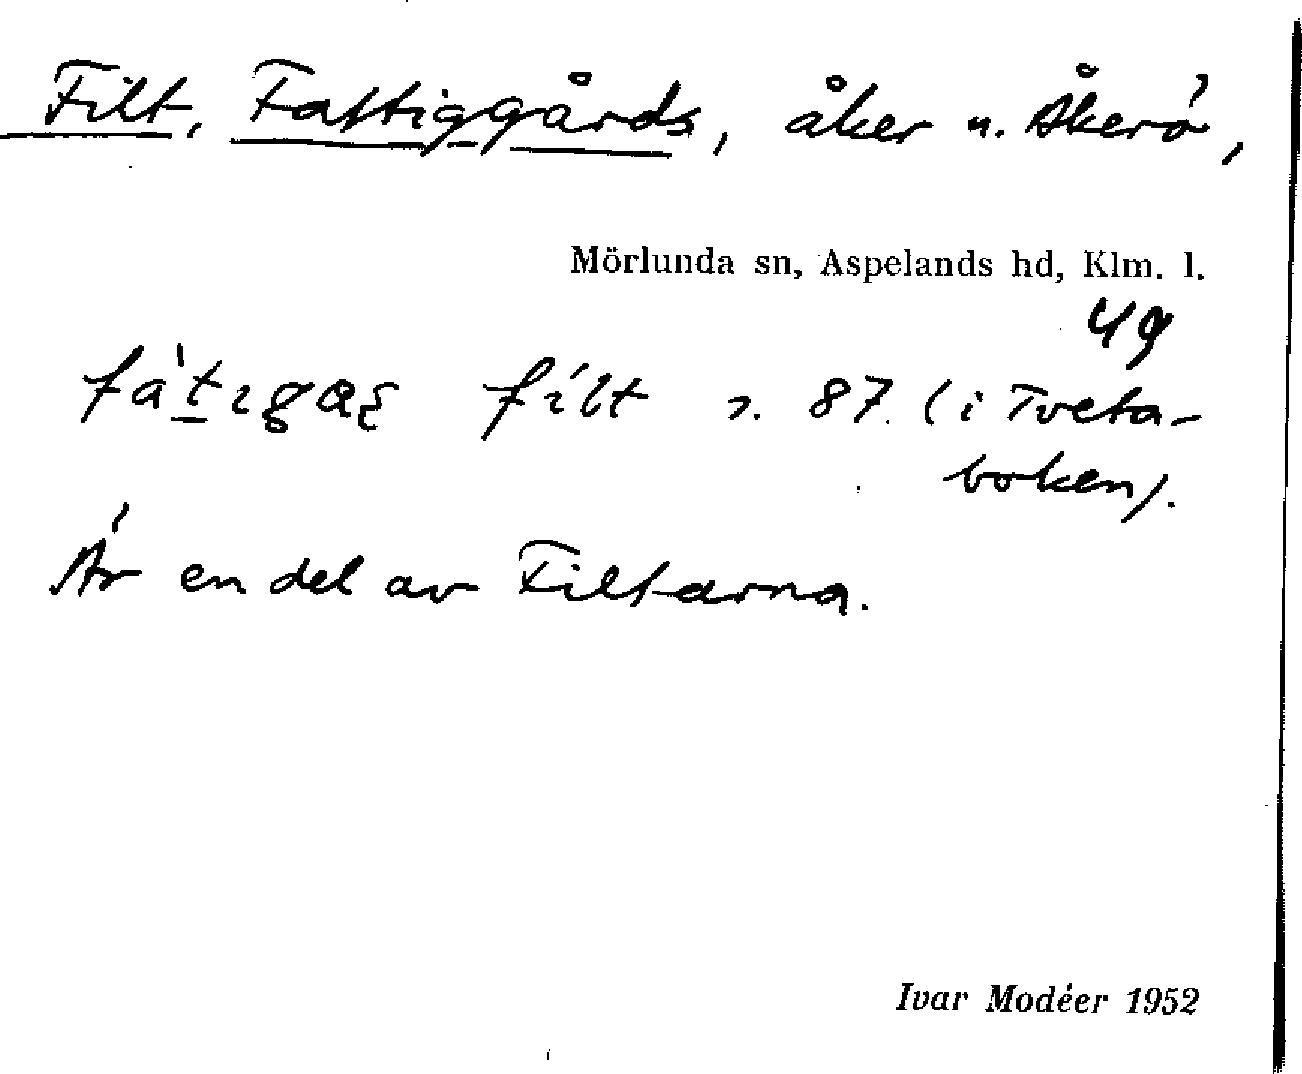 Filt, Fattiggårds, åker u. Åkerö,
Mörlunda sn, Aspelands hd, Klm. l.
49
filt s. 87. (i Tveta-
boken).
Är en del av Filtarna.
Ivar Modéer 1952